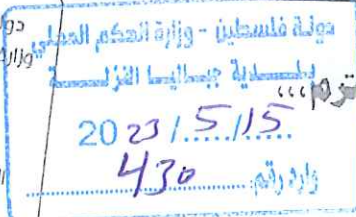 دولة فلسطين - وزارة الحكم المحلي
بلدية جباليا النزلة
2023/5/15
وارد رقم: 430